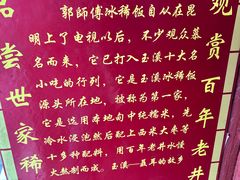 郭師傅冰稀飯自从在昆
明上了电视以后，不少观众慕
名而来，它已打入玉溪十大名
小吃的行列，它是玉溪冰稀飯
源头所在地，被称为第一家，
它是采用本地向中稀糯米，先
冷水浸泡然后配上西米大枣等
十多种配料，用百年老井水慢
火熬制而成。玉溪—聂耳的故乡
尝世家稀
观赏百年老井